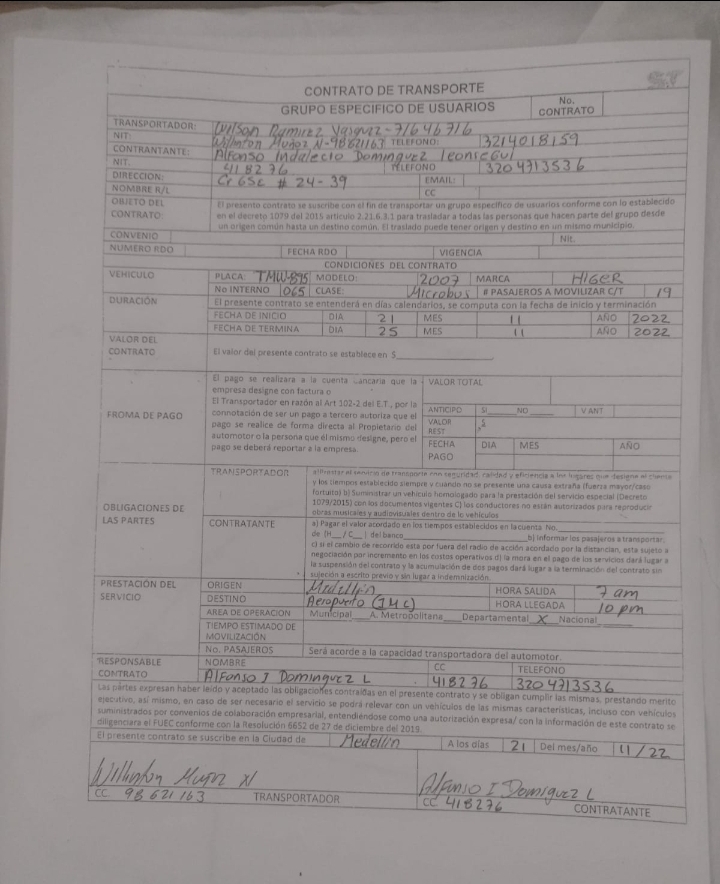 CONTRATO DE TRANSPORTE
GRUPO ESPECIFICO DE USUARIOS No. CONTRATO
TRANSPORTADOR: Wilson Ramirez Vasquez - 71646716
NIT: Willinton Muñoz N - 98621163 TELEFONO: 3214018159
CONTRANTANTE: Alfonso Indalecio Dominguez
NIT. 418276 TELEFONO 3204713536
DIRECCION: Cr 65c # 24-39 EMAIL:
NOMBRE R/L CC
OBJETO DEL CONTRATO: El presente contrato se suscribe con el fin de transportar un grupo especifico de usuarios conforme con lo establecido
en el decreto 1079 del 2015 articulo 2.21.6.3.1 para trasladar a todas las personas que hacen parte del grupo desde
un origen común hasta un destino común. El traslado puede tener origen y destino en un mismo municipio.
CONVENIO Nit.
NUMERO RDO FECHA RDO VIGENCIA
CONDICIONES DEL CONTRATO
VEHICULO PLACA: TMW-895 MODELO: 2007 MARCA HIGER
No INTERNO 065 CLASE: Microbus # PASAJEROS A MOVILIZAR C/T 19
DURACIÓN El presente contrato se entenderá en días calendarios, se computa con la fecha de inicio y terminación
FECHA DE INICIO DIA 21 MES 11 AÑO 2022
FECHA DE TERMINA DIA 25 MES 11 AÑO 2022
VALOR DEL CONTRATO El valor del presente contrato se establece en $
FROMA DE PAGO El pago se realizara a la cuenta bancaria que la
empresa designe con factura o
El Transportador en razón al Art 102-2 del E.T., por la
connotación de ser un pago a tercero autoriza que el
pago se realice de forma directa al Propietario del
automotor o la persona que él mismo designe, pero el
pago se deberá reportar a la empresa.
VALOR TOTAL
ANTICIPO SI NO V ANT
VALOR REST $
FECHA PAGO DIA MES AÑO
OBLIGACIONES DE LAS PARTES
TRANSPORTADOR a)Prestar el servicio de transporte con seguridad, calidad y eficiencia a los lugares que designe el cliente
y los tiempos establecido siempre y cuando no se presente una causa extraña (fuerza mayor/caso
fortuito) b) Suministrar un vehículo homologado para la prestación del servicio especial (Decreto
1079/2015) con los documentos vigentes C) los conductores no están autorizados para reproducir
obras musicales y audiovisuales dentro de lo vehículos
CONTRATANTE a) Pagar el valor acordado en los tiempos establecidos en la cuenta No.
de (H__/C__) del banco b) informar los pasajeros a transportar,
c) si el cambio de recorrido esta por fuera del radio de acción acordado por la distancian, esta sujeto a
negociación por incremento en los costos operativos d) la mora en el pago de los servicios dará lugar a
la suspensión del contrato y la acumulación de dos pagos dará lugar a la terminación del contrato sin
sujeción a escrito previo y sin lugar a indemnización.
PRESTACIÓN DEL SERVICIO ORIGEN Medellin HORA SALIDA 7 am
DESTINO Aeropuerto (JMC) HORA LLEGADA 10 pm
AREA DE OPERACION Municipal A. Metropolitana Departamental X Nacional
TIEMPO ESTIMADO DE MOVILIZACIÓN
No. PASAJEROS Será acorde a la capacidad transportadora del automotor.
RESPONSABLE CONTRATO NOMBRE CC TELEFONO
Alfonso I Dominguez L 418276 3204713536
Las pártes expresan haber leído y aceptado las obligaciones contraídas en el presente contrato y se obligan cumplir las mismas, prestando merito
ejecutivo, así mismo, en caso de ser necesario el servicio se podrá relevar con un vehículos de las mismas características, incluso con vehículos
suministrados por convenios de colaboración empresarial, entendiéndose como una autorización expresa/ con la información de este contrato se
diligenciara el FUEC conforme con la Resolución 6652 de 27 de diciembre del 2019.
El presente contrato se suscribe en la Ciudad de Medellín A los días 21 Del mes/año 11/22
Willinton Muñoz N Alfonso I Dominguez L
CC 98621163 TRANSPORTADOR CC 418276 CONTRATANTE